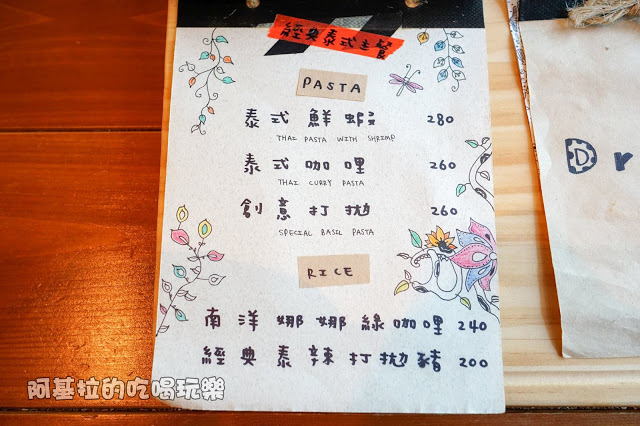 經典泰式主餐
PASTA
泰式鮮蝦 280
THAI PASTA WITH SHRIMP
泰式咖哩 260
THAI CURRY PASTA
創意打拋 260
SPECIAL BASIL PASTA
RICE
南洋娜娜綠咖哩 240
經典泰辣打拋豬 200
Dr
阿基拉的吃喝玩樂